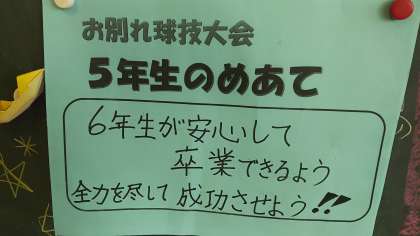 お別れ球技大会
5年生のめあて
6年生が安心して
卒業できるよう
全力を尽して成功させよう!!